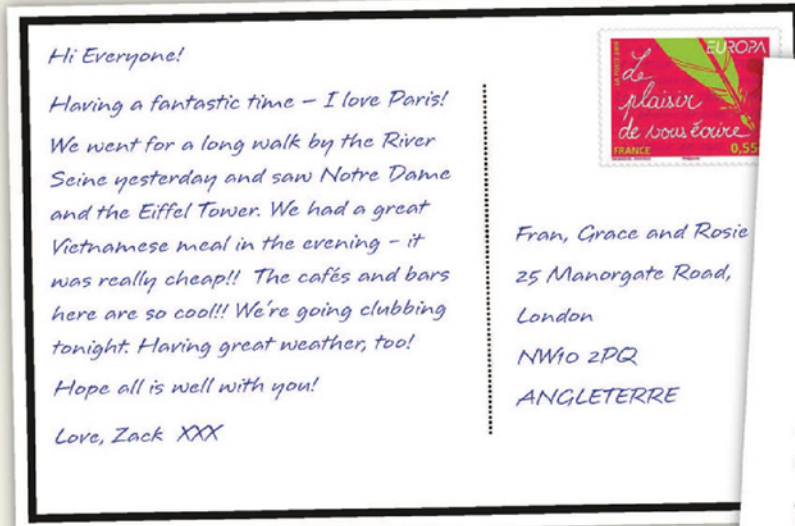 Hi Everyone!
Having a fantastic time – I love Paris!
We went for a long walk by the River
Seine yesterday and saw Notre Dame
and the Eiffel Tower. We had a great
Vietnamese meal in the evening – it
was really cheap!! The cafés and bars
here are so cool!! We're going clubbing
tonight. Having great weather, too!
Hope all is well with you!
Love, Zack XXX
EUROPA
Le
plaisir
de vous écrire
FRANCE 0,55
Fran, Grace and Rosie
25 Manorgate Road,
London
NW10 2PQ
ANGLETERRE